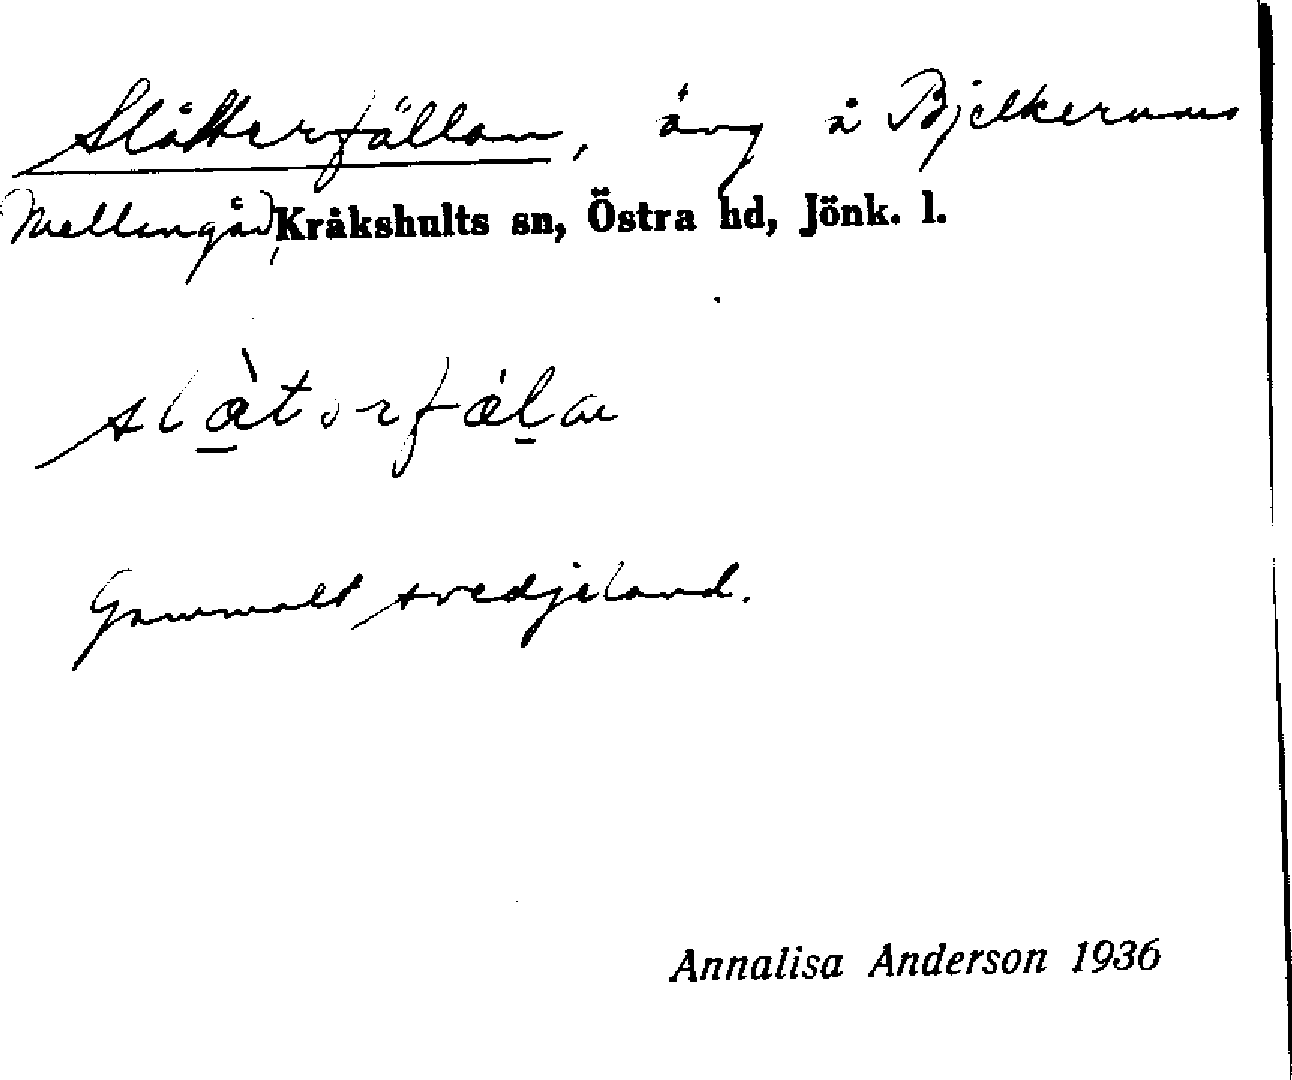 Slåtterfällan, äng å Bjelkerums
Mellangård, Kråkshults sn, Östra hd, Jönk. l.
slåtərfälan
Gammalt svedjeland.
Annalisa Anderson 1936